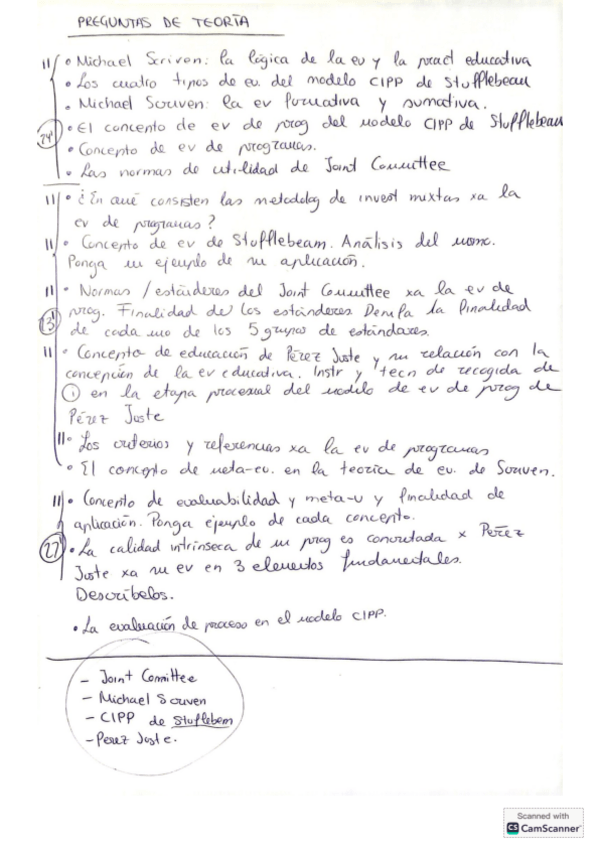 PREGUNTAS DE TEORÍA
11 • Michael Scriven: la lógica de la ev y la pract educativa
• Los cuatro tipos de ev. del modelo CIPP de Stufflebeau
• Michael Scriven: la ev formativa y sumativa.
• El concento de ev de prog del modelo CIPP de Stufflebeau
• Concepto de ev de programas.
• Las normas de utilidad de Joint Committee
11 • ¿En qué consisten las metodolog de invest mixtas xa la
ev de programas?
11 • Concepto de ev de Stufflebeam. Análisis del
Ponga un ejemplo de su aplicación.
11 • Normas / estándares del Joint Committee xa la ev de
prog. Finalidad de los estándares Defina la finalidad
de cada uno de los 5 grupos de estándares.
11 • Concepto de educación de Pérez Juste y su relación con la
concepción de la ev educativa. Instr y tecn de recogida de
i en la etapa procesual del modelo de ev de prog de
Pérez Juste
11 • Los criterios y referencias xa la ev de programas
• El concepto de meta-ev. en la teoría de ev. de Scriven.
11 • Concepto de evaluabilidad y meta-v y finalidad de
aplicación. Ponga ejemplo de cada concepto.
27 • La calidad intrínseca de un prog es concretada x Pérez
Juste xa su ev en 3 elementos fundamentales.
Descríbelos.
• La evaluación de proceso en el modelo CIPP.
- Joint Committee
- Michael Scriven
- CIPP de Stuflebem
- Perez Juste.
Scanned with
CS CamScanner